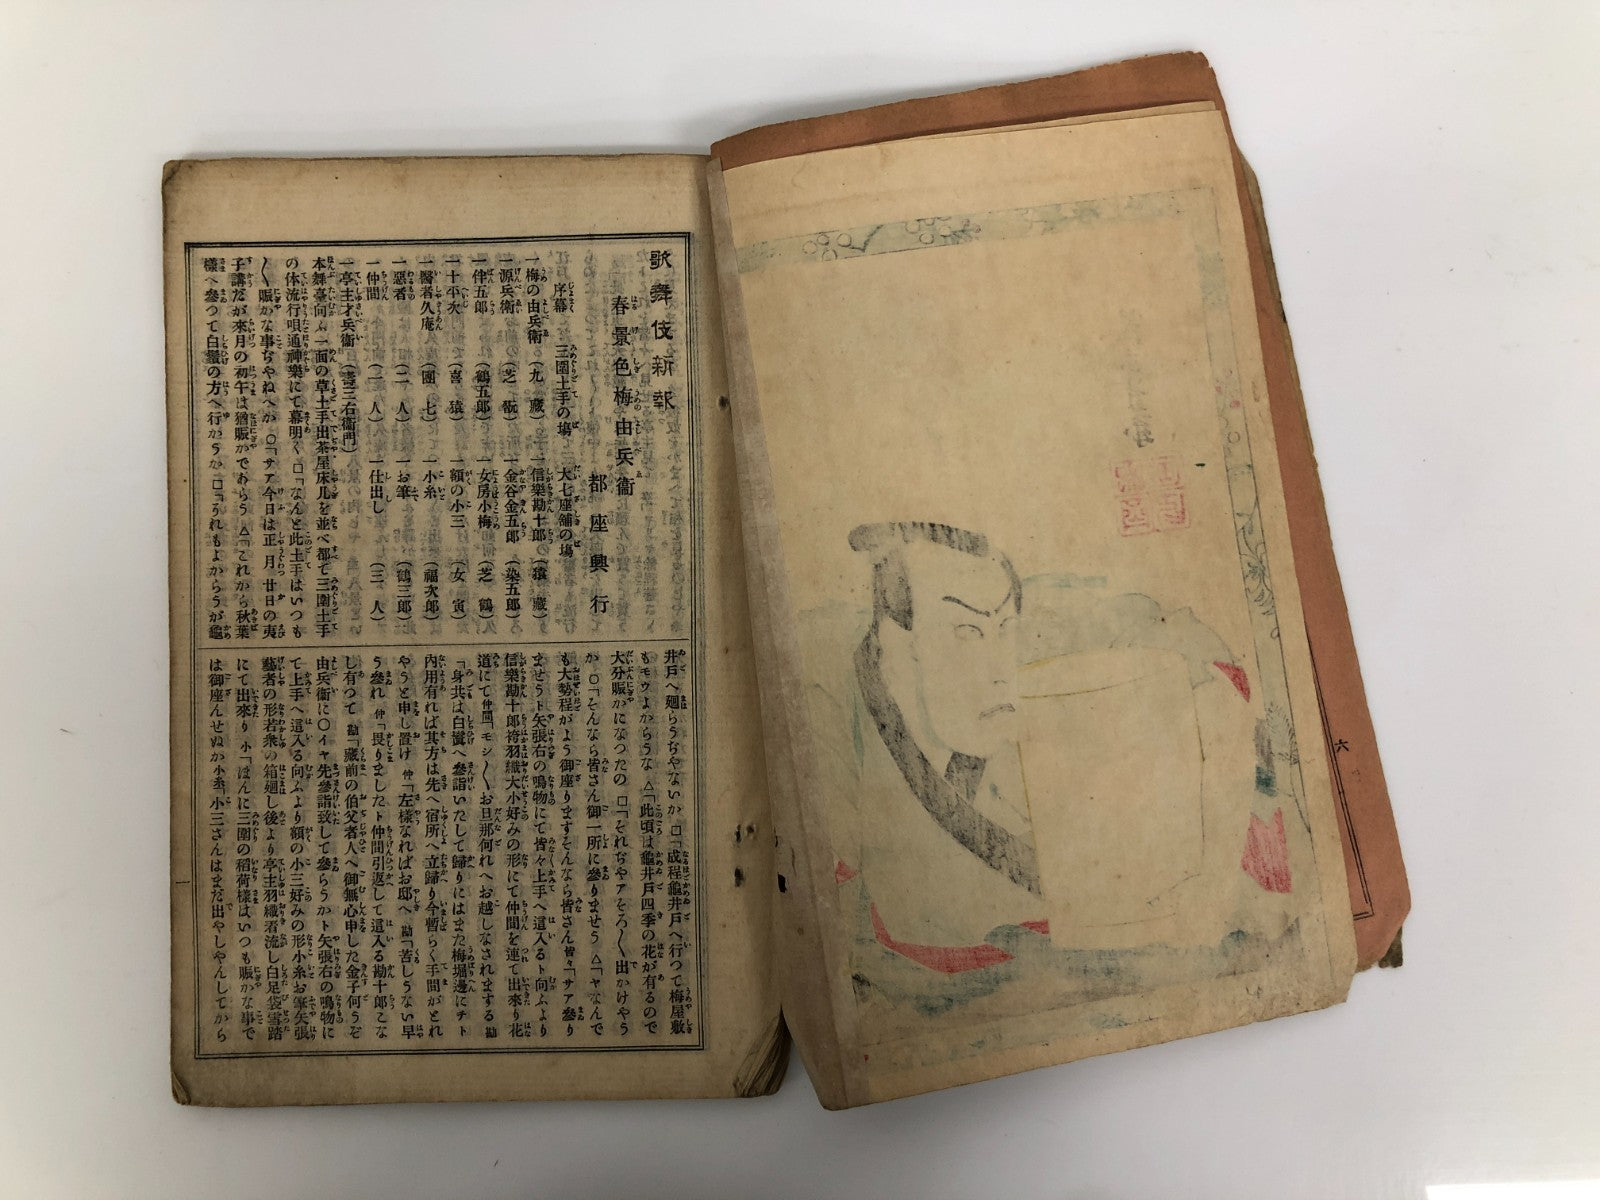 歌舞伎新報
春景色梅由兵衞
都座興行
序幕 三圍土手の塲 大七座舖の塲
一梅の由兵衞（九藏）一信樂勘十郎（猿藏）
一源兵衞（芝翫）一金谷金五郎（染五郎）
一伴五郎（鶴五郎）一女房小梅（芝鶴）
一十平次（喜猿）一額の小三（女寅）
一醫者久庵（團七）一小糸（福次郎）
一惡者（二人）一お筆（鶴三郎）
一仲間（二人）一仕出し（三人）
一亭主才兵衞（壽三右衞門）
本舞臺向ふ一面の草土手出茶屋床几を並べ都て三圍土手
の体流行唄通神樂にて幕明く□「なんと此土手はいつも
〳〵賑かな事ぢやねへか○「サア今日は正月廿日の夷
子講だが來月の初午は猶賑かであらう△「これから秋葉
樣へ參つて白鬚の方へ行かうか□「それもよからうが龜
井戸へ廻らうぢやないか□「成程龜井戸へ行つて梅屋敷
もモウよからうな△「此頃は龜井戸四季の花が有るので
大分賑かになつたの□「それぢやアそろ〳〵出かけやう
か○「そんなら皆さん御一所に參りませう△「ヤなんで
も大勢程がよう御座りますそんなら皆さん皆々「サア參り
ませうト矢張右の鳴物にて皆々上手へ這入るト向ふより
信樂勘十郎袴羽織大小好みの形にて仲間を連て出來り花
道にて仲間「モシ〳〵お旦那何れへお越しなされまする勘
「身共は白鬚へ參詣いたして歸りにはまた梅堀邊にチト
内用有れば其方は先へ宿所へ立歸り今暫らく手間がとれ
やうと申し置け仲「左樣なればお邸へ勘「苦しうない早
う參れ仲「畏りましたト仲間引返して這入る勘十郎こな
し有つて勘「藏前の伯父者人へ御無心申した金子何うぞ
由兵衞に○イヤ先參詣致して參らうかト矢張右の鳴物に
て上手へ這入る向ふより額の小三好みの形小糸お筆矢張
藝者の形若衆の箱廻し後より亭主羽織着流し白足袋雪踏
にて出來り小「ほんに三圍の稻荷樣はいつも賑かな事で
は御座んせぬか小糸「小三さんはまだ出やしやんしてから
一
六